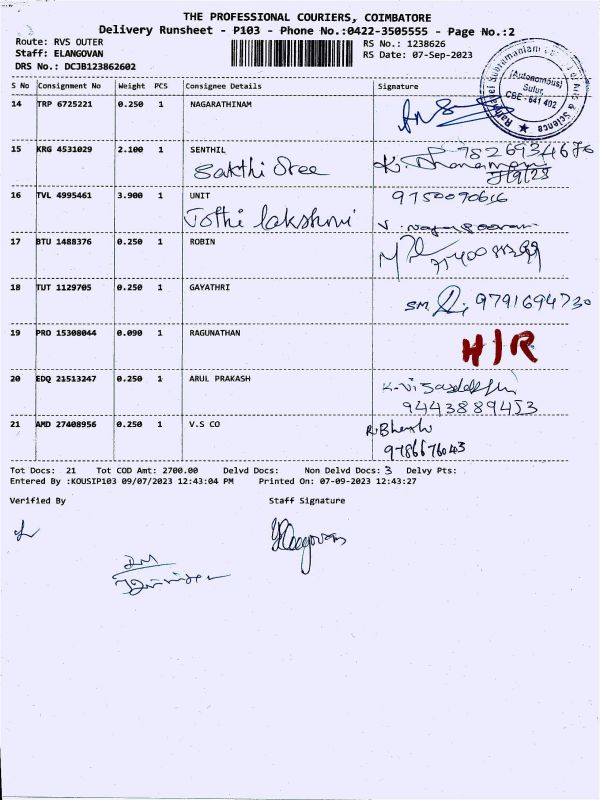 THE PROFESSIONAL COURIERS, COIMBATORE
Delivery Runsheet - P103 - Phone No.:0422-3505555 - Page No.:2
Route: RVS OUTER
Staff: ELANGOVAN
DRS No.: DCJB123862602
RS No.: 1238626
RS Date: 07-Sep-2023
(Autonomous)
Sulur,
CBE - 641 402
S No Consignment No Weight PCS Consignee Details Signature
14 TRP 6725221 0.250 1 NAGARATHINAM
15 KRG 4531029 2.100 1 SENTHIL
Sakthi Sree 7826934676
K. Dhanamani
7/9/23
16 TVL 4995461 3.900 1 UNIT 9750090616
Jothi lakshmi
17 BTU 1488376 0.250 1 ROBIN
18 TUT 1129705 0.250 1 GAYATHRI
SM. 9791694730
19 PRO 15308044 0.090 1 RAGUNATHAN
H/R
20 EDQ 21513247 0.250 1 ARUL PRAKASH
9443889453
21 AMD 27408956 0.250 1 V.S CO
9786676043
Tot Docs: 21 Tot COD Amt: 2700.00 Delvd Docs: Non Delvd Docs: 3 Delvy Pts:
Entered By :KOUSIP103 09/07/2023 12:43:04 PM Printed On: 07-09-2023 12:43:27
Verified By Staff Signature
Elangovan